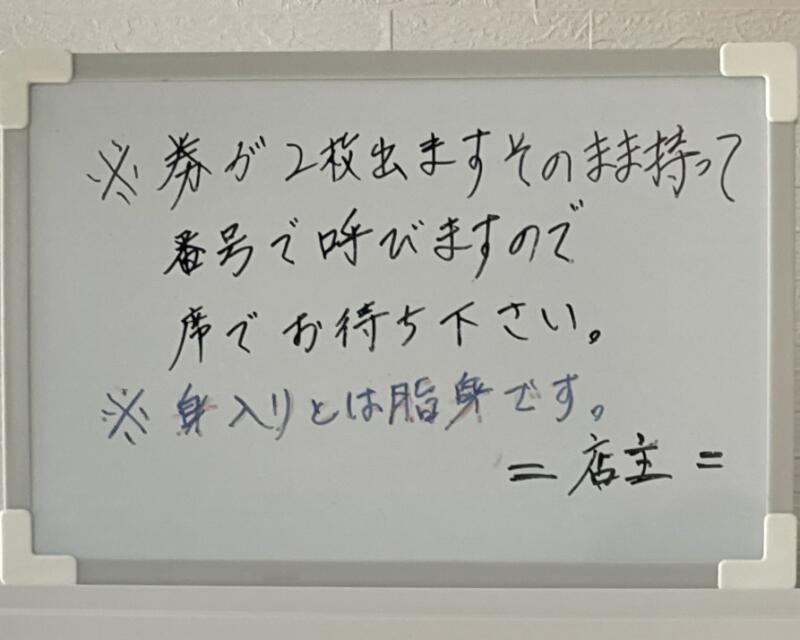 ※券が2枚出ますそのまま持って
番号で呼びますので
席でお待ち下さい。
※身入りとは脂身です。
=店主=